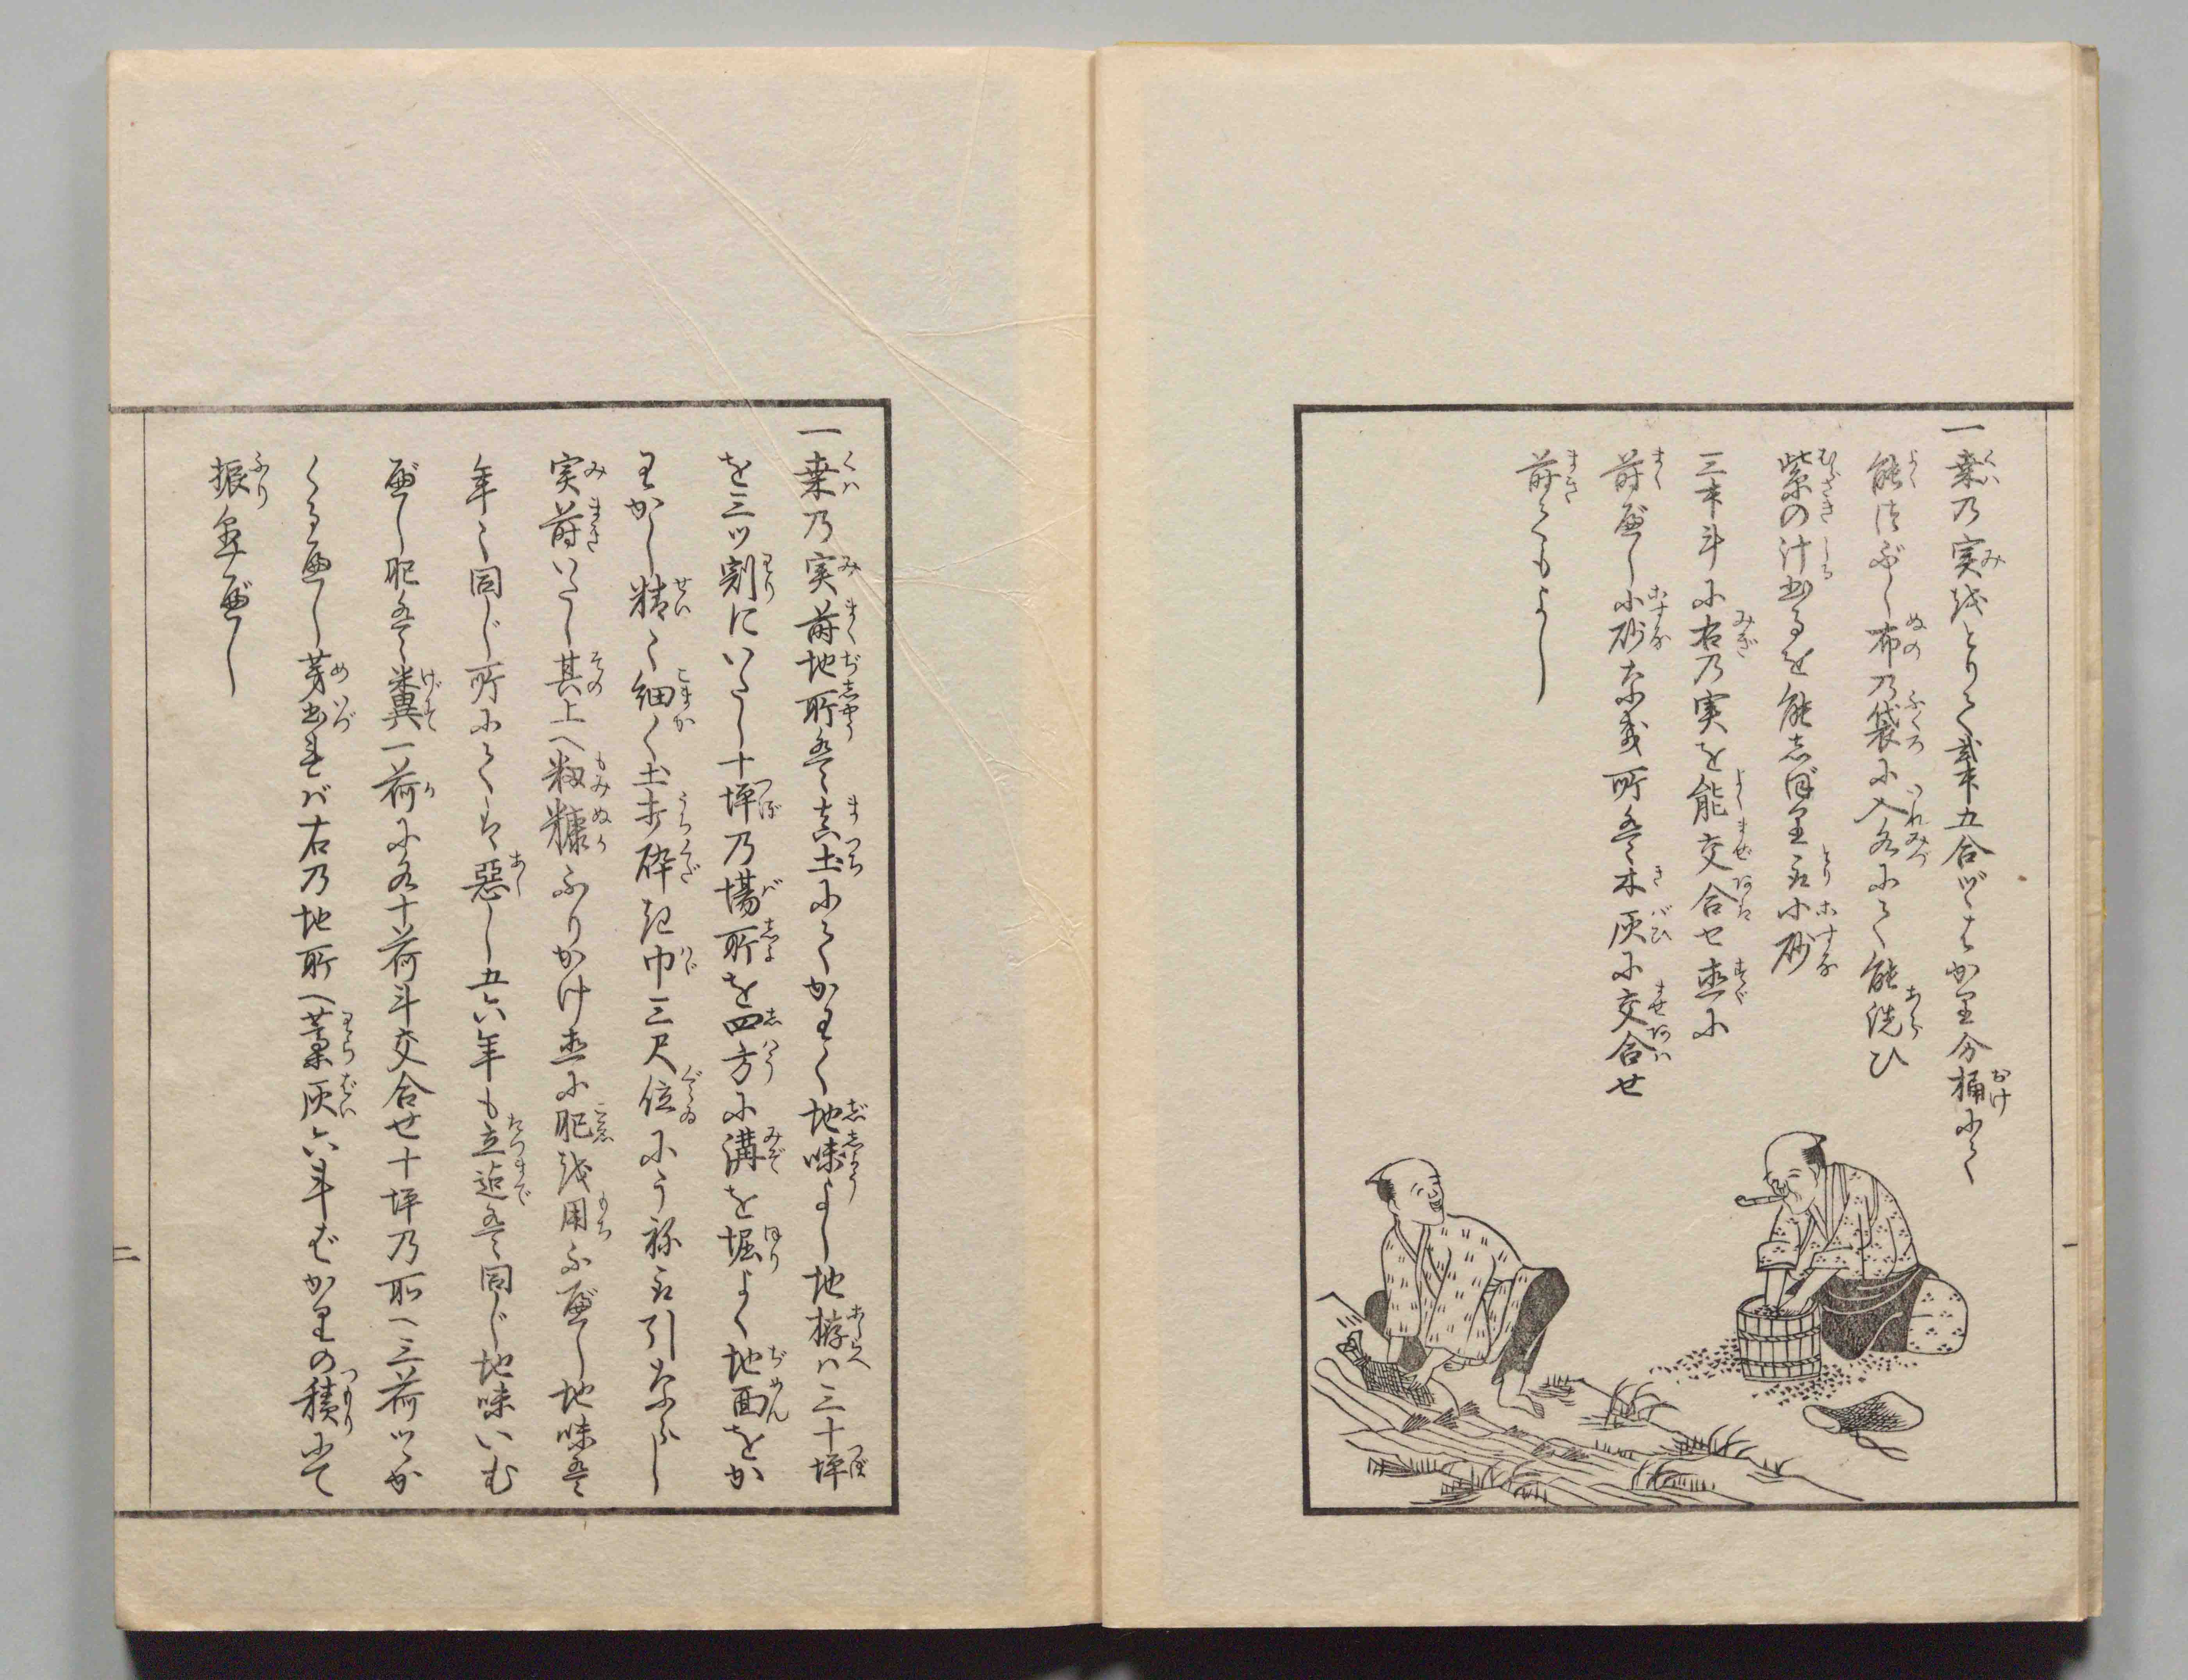 一桑乃実越とりて弐升五合づゝはかり分桶にて
能津ぶし布乃袋に入水にて能洗ひ
紫の汁出るを能志ぼり取小砂
三升斗に右乃実を能交合セ直に
蒔べし小砂なき所は木灰に交合せ
蒔てもよし
一
一桑乃実蒔地所は真土にてかわく地味よし地拵ハ三十坪
を三ツ割にいたし十坪乃場所を四方に溝を堀よく地面をか
わかし精〻細く土打砕き巾三尺位にうね引ならし
実蒔いたし其上へ籾糠ふりかけ直に肥越用ふべし地味は
年〻同じ所にては悪し五六年も立迄は同じ地味いむ
べし肥は糞一荷に水十荷斗交合せ十坪乃所へ三荷づゝか
くる也べし芽出れバ右乃地所へ藁灰六斗ばかりの積にて
振無べし
二